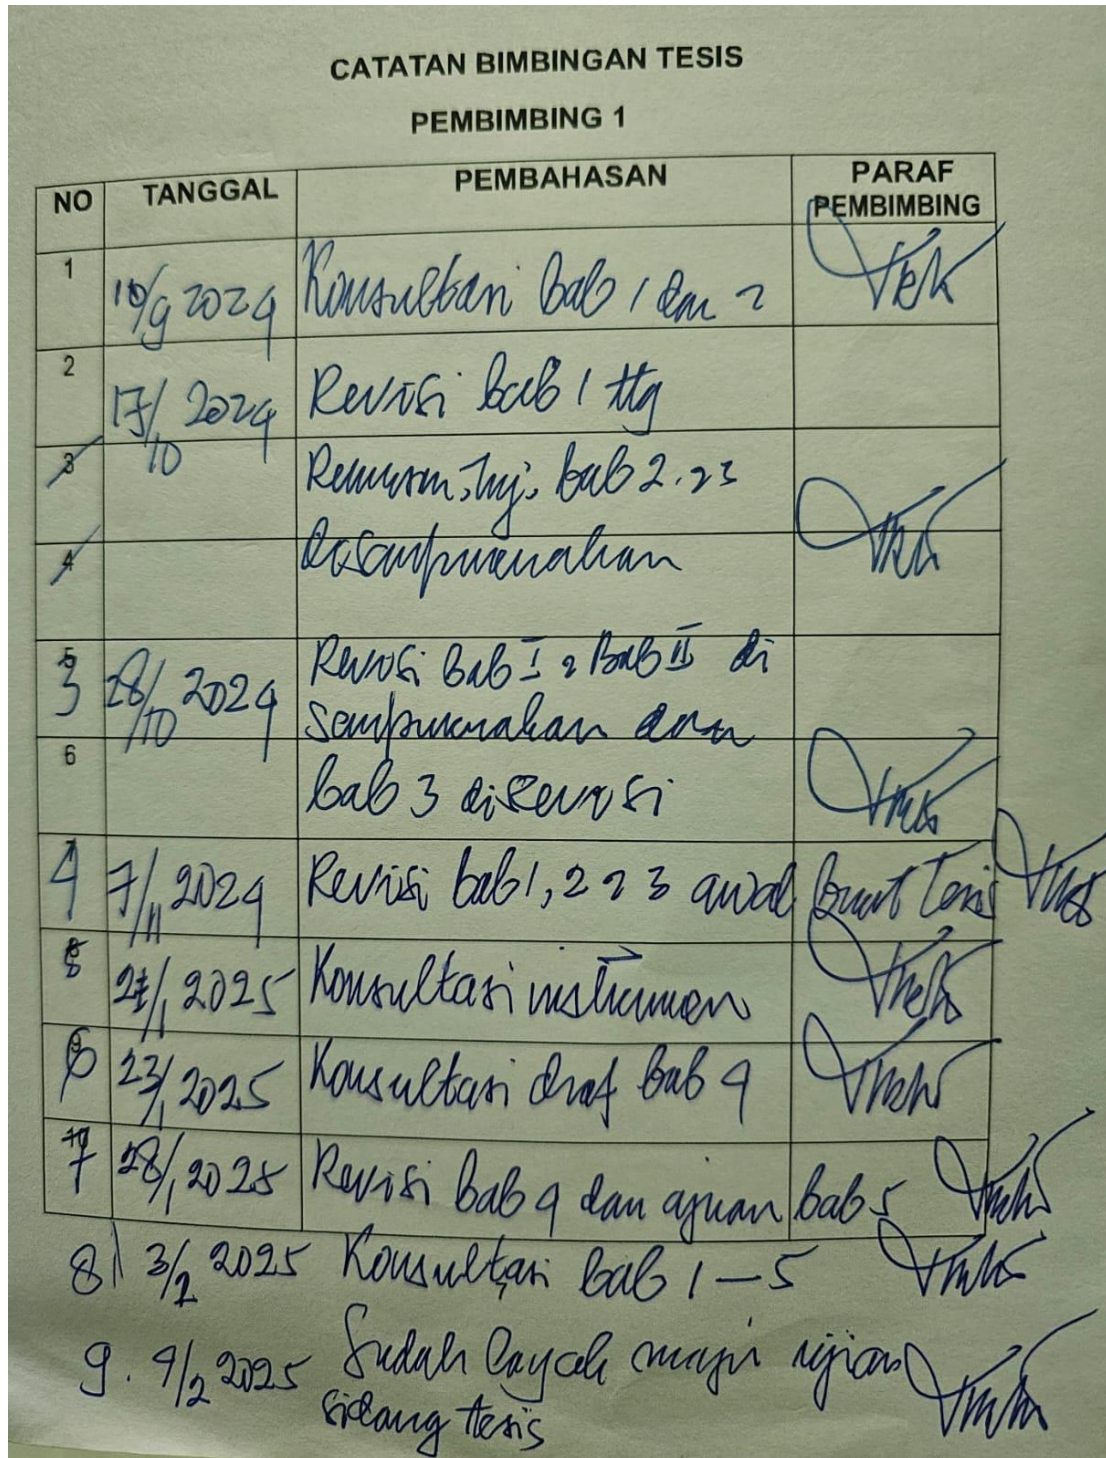 CATATAN BIMBINGAN TESIS
PEMBIMBING 1
NO TANGGAL PEMBAHASAN PARAF PEMBIMBING
1 10/9 2024 Konsultasi bab 1 dan 2
2 17/10 2024 Revisi bab 1 ttg
3 bab 2.
4 disempurnakan
3 28/10 2024 Revisi Bab I Bab II di
sempurnakan dan
6 bab 3 direvisi
4 7/11 2024 Revisi bab 1, 2 3 awal buat Tesis
5 /1 2025 Konsultasi instrumen
6 23/1 2025 Konsultasi draf bab 4
7 28/1 2025 Revisi bab 4 dan ajuan bab 5
8) 3/2 2025 Konsultasi bab 1 – 5
9. 4/2 2025 Sudah layak maju ujian
sidang tesis